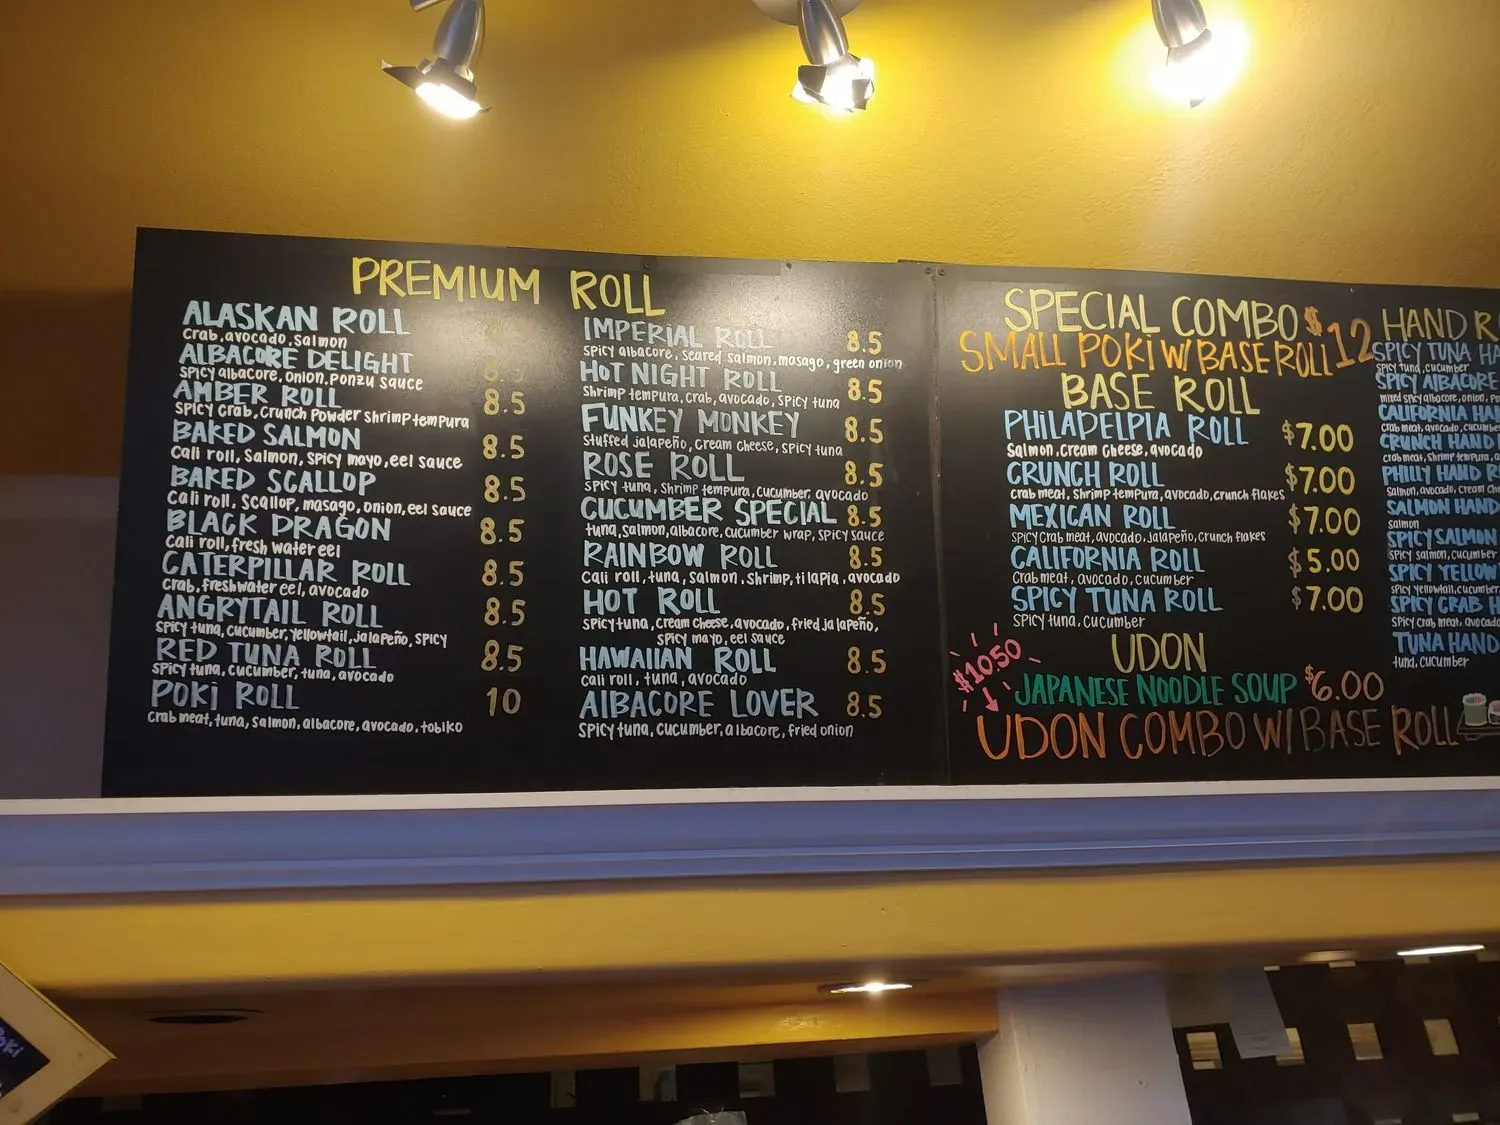 PREMIUM ROLL
ALASKAN ROLL
Crab, avocado, Salmon
ALBACORE DELIGHT
Spicy albacore, onion, ponzu sauce
AMBER ROLL 8.5
Spicy crab, crunch powder shrimp tempura
BAKED SALMON 8.5
Cali roll, Salmon, spicy mayo, eel sauce
BAKED SCALLOP 8.5
Cali roll, scallop, masago, onion, eel sauce
BLACK DRAGON 8.5
Cali roll, fresh water eel
CATERPILLAR ROLL 8.5
Crab, freshwater eel, avocado
ANGRYTAIL ROLL 8.5
Spicy tuna, cucumber, yellowtail, jalapeño, spicy
RED TUNA ROLL 8.5
Spicy tuna, cucumber, tuna, avocado
POKi ROLL 10
Crab meat, tuna, salmon, albacore, avocado, tobiko
IMPERIAL ROLL 8.5
Spicy albacore, seared salmon, masago, green onion
HOT NIGHT ROLL 8.5
Shrimp tempura, crab, avocado, spicy tuna
FUNKEY MONKEY 8.5
Stuffed jalapeño, cream cheese, spicy tuna
ROSE ROLL 8.5
Spicy tuna, shrimp tempura, cucumber, avocado
CUCUMBER SPECIAL 8.5
tuna, salmon, albacore, cucumber wrap, spicy sauce
RAINBOW ROLL 8.5
Cali roll, tuna, salmon, shrimp, tilapia, avocado
HOT ROLL 8.5
Spicy tuna, cream cheese, avocado, fried jalapeño,
spicy mayo, eel sauce
HAWAIIAN ROLL 8.5
Cali roll, tuna, avocado
AlBACORE LOVER 8.5
Spicy tuna, cucumber, albacore, fried onion
SPECIAL COMBO $12
SMALL POKi W/ BASE ROLL
BASE ROLL
PHiLADELPIA ROLL $7.00
Salmon, cream cheese, avocado
CRUNCH ROLL $7.00
Crab meat, shrimp tempura, avocado, crunch flakes
MEXICAN ROLL $7.00
Spicy crab meat, avocado, jalapeño, crunch flakes
CALIFORNIA ROLL $5.00
Crab meat, avocado, cucumber
SPICY TUNA ROLL $7.00
Spicy tuna, cucumber
UDON
JAPANESE NOODLE SOUP $6.00
$10.50
UDON COMBO W/ BASE ROLL
HAND R
SPICY TUNA HA
Spicy tuna, cucumber
SPICY AlBACORE
mixed spicy albacore, onion, po
CALIFORNIA HAN
Crab meat, avocado, cucumber
CRUNCH HAND
Crab meat, shrimp tempura, a
PHILLY HAND R
Salmon, avocado, cream che
SALMON HAND
salmon
SPICY SALMON
Spicy salmon, cucumber
SPICY YELLOW
Spicy yellowtail, cucumber
SPICY CRAB H
Spicy crab meat, avocado
TUNA HAND
tuna, cucumber